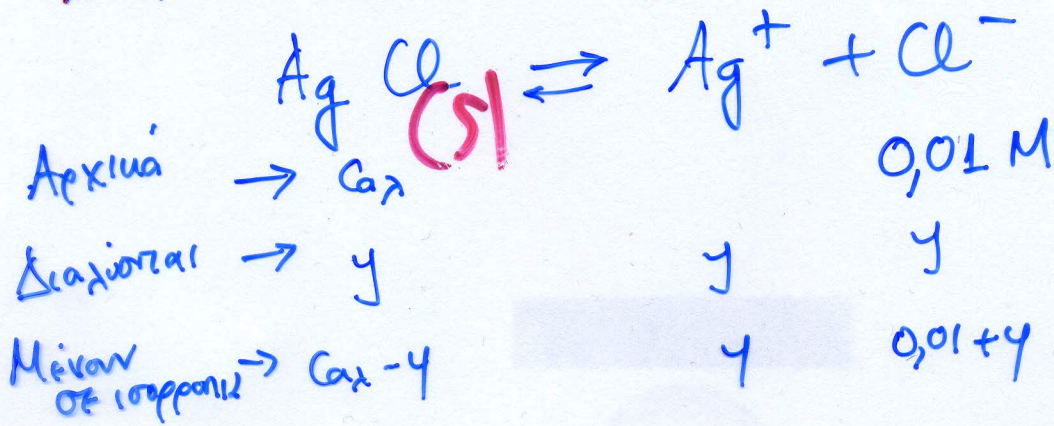 AgCl(s) ⇌ Ag⁺ + Cl⁻
Αρχικά → Cαλ 0,01 M
Διαλύονται → y y y
Μένουν σε ισορροπία → Cαλ-y y 0,01+y